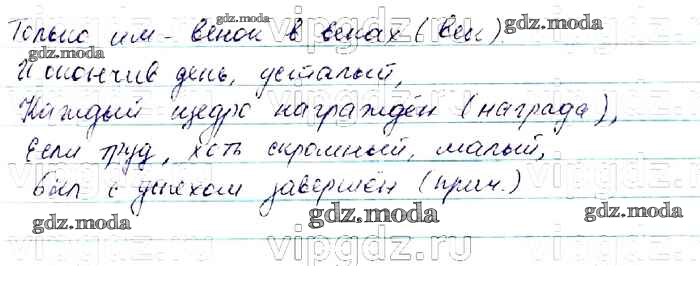 Только им - венок в веках (век)
И окончив день, усталый,
Каждый щедро награждён (награда),
Если труд, хоть скромный, малый,
Был с успехом завершён (прич.)
gdz.moda
gdz.moda
gdz.moda
gdz.moda
gdz.moda
gdz.moda
gdz.moda
vipgdz.ru
vipgdz.ru